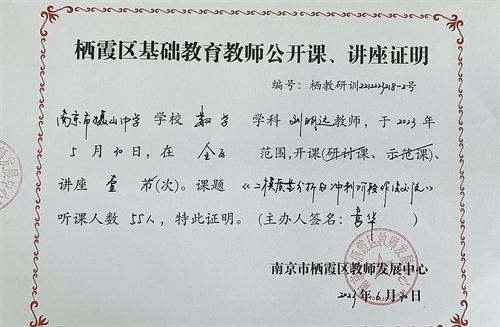 栖霞区基础教育教师公开课、讲座证明
编号：栖教研训2212223218-2号
南京市栖霞山中学 学校 数学 学科 刘明远 教师，于 2023 年
5 月 30 日，在 全区 范围，开课(研讨课、示范课)、
讲座 壹 节(次)。课题 《二模质量分析与冲刺阶段作法交流》
听课人数 55人，特此证明。(主办人签名： )
南京市栖霞区教师发展中心
2023年6月30日